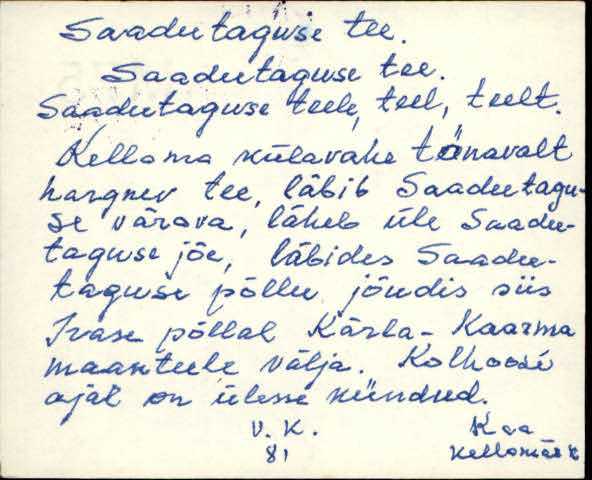 Saadutaguse tee.
Saadutaguse tee.
Saadutaguse teele, teel, teelt.
Kelloma külavahe tänavalt
hargnev tee, läbib Saadutagu-
se värava, läheb üle Saadu-
taguse jõe, läbides Saadu-
taguse põllu jõudis siis
Irase põllal Kärla-Kaarma
maanteele välja. Kolhoosi
ajal on ülesse küntud.
V. K. Kaa
81